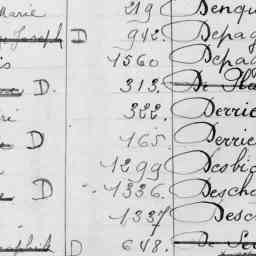 Marie 219 Denqu
Joseph D 942. Depag
is 1560 Depag
D. 313. De Pla
ri 322. Derrie
e D 165. Derrie
1299 Desbie
e D 1336. Descha
1337 Desc
D 648. De Se